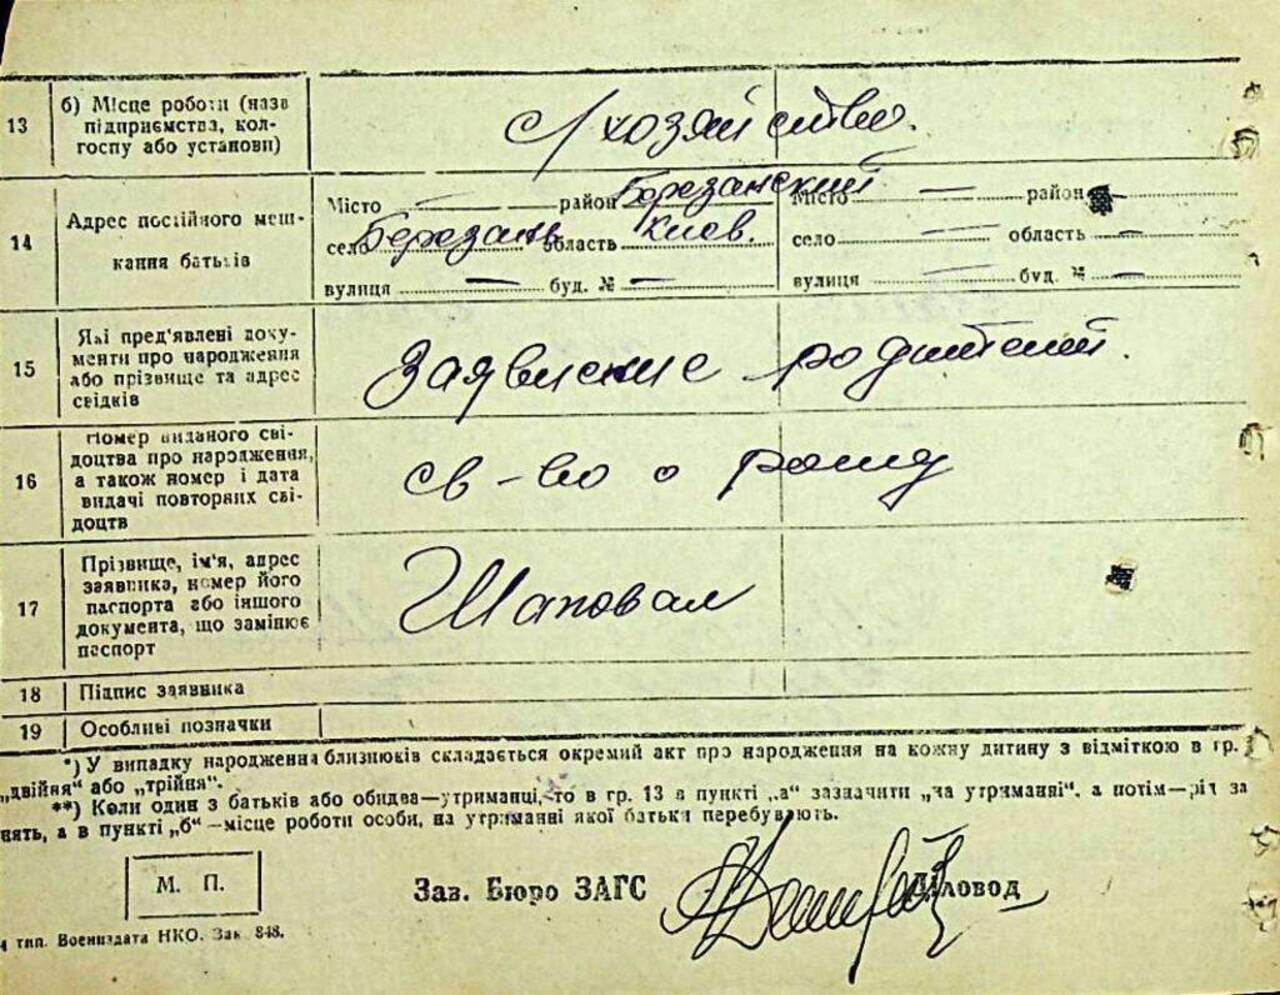 13
б) Місце роботи (назв
підприємства, кол-
госпу або установи)
с/хозяйство.
14
Адрес постійного меш-
кання батьків
Місто — район Березанский Місто — район
село Березань область Киев. село — область —
вулиця — буд. № — вулиця — буд. № —
15
Які пред'явлені доку-
менти про народження
або прізвище та адрес
свідків
Заявление родителей.
16
Номер виданого сві-
доцтва про народження,
а також номер і дата
видачі повторних сві-
доцтв
св-во о рожд
17
Прізвище, ім'я, адрес
заявника, номер його
паспорта або іншого
документа, що замінює
паспорт
Шаповал
18 Підпис заявника
19 Особливі позначки
*) У випадку народження близнюків складається окремий акт про народження на кожну дитину з відміткою в гр.
„двійня“ або „трійня“.
**) Коли один з батьків або обидва—утриманці, то в гр. 13 в пункті „а“ зазначити „на утриманні“, а потім—рід за
нять, а в пункті „б“—місце роботи особи, на утриманні якої батьки перебувають.
М. П.
Зав. Бюро ЗАГС Діловод
4 тип. Воениздата НКО. Зак. 848.